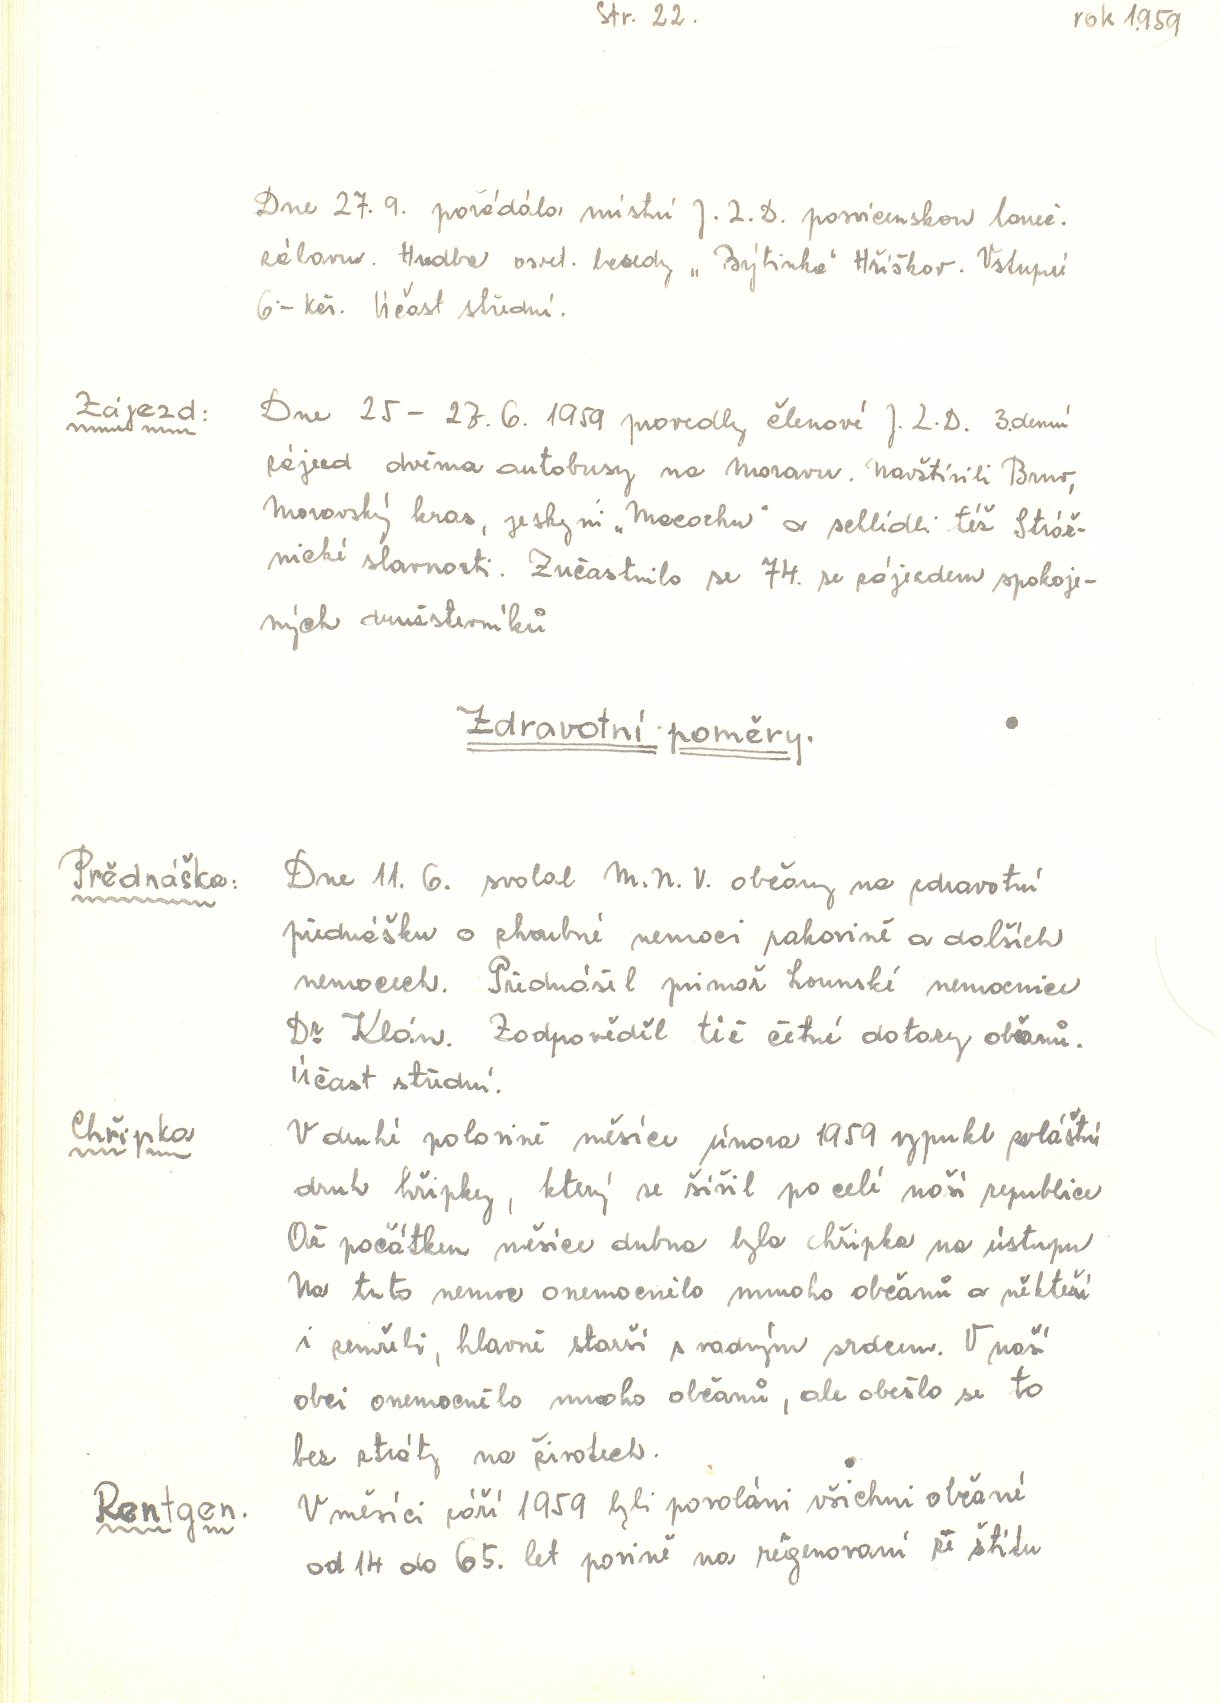 Str. 22.
rok 1959
Dne 27. 9. pořádalo místní J. Z. D. posvícenskou taneč.
zábavu. Hudba osvět. besedy „Býtinka“ Hříškov. Vstupné
6.– Kčs. Účast střední.
Zájezd:
Dne 25 – 27. 6. 1959 provedly členové J. Z. D. 3.denní
zájezd dvěma autobusy na Moravu. Navštívili Brno,
Moravský kras, jeskyni „Macochu“ a shlédli též Stráž-
nické slavnosti. Zúčastnilo se 74. se zájezdem spokoje-
ných družstevníků
Zdravotní poměry.
Prědnáška:
Dne 11. 6. svolal M. N. V. občany na zdravotní
přednášku o zhoubné nemoci rakovině a dalších
nemocech. Přednášel primař Lounské nemocnice
Dr Klán. Zodpověděl též četné dotazy občanů.
Účast střední.
Chřipka
V druhé polovině měsíce února 1959 vypukl zvláštní
druh hřipky, který se šířil po celé naší republice
Od počátkem měsíce dubna byla chřipka na ústupu
Na tuto nemoc onemocnělo mnoho občanů a někteří
i zemřeli, hlavně starší s vadným srdcem. V naší
obci onemocnělo mnoho občanů, ale obešlo se to
bez ztráty na životech.
Rentgen.
V měsíci září 1959 byli povoláni všichni občané
od 14 do 65. let povině na régenovaní ze štítu